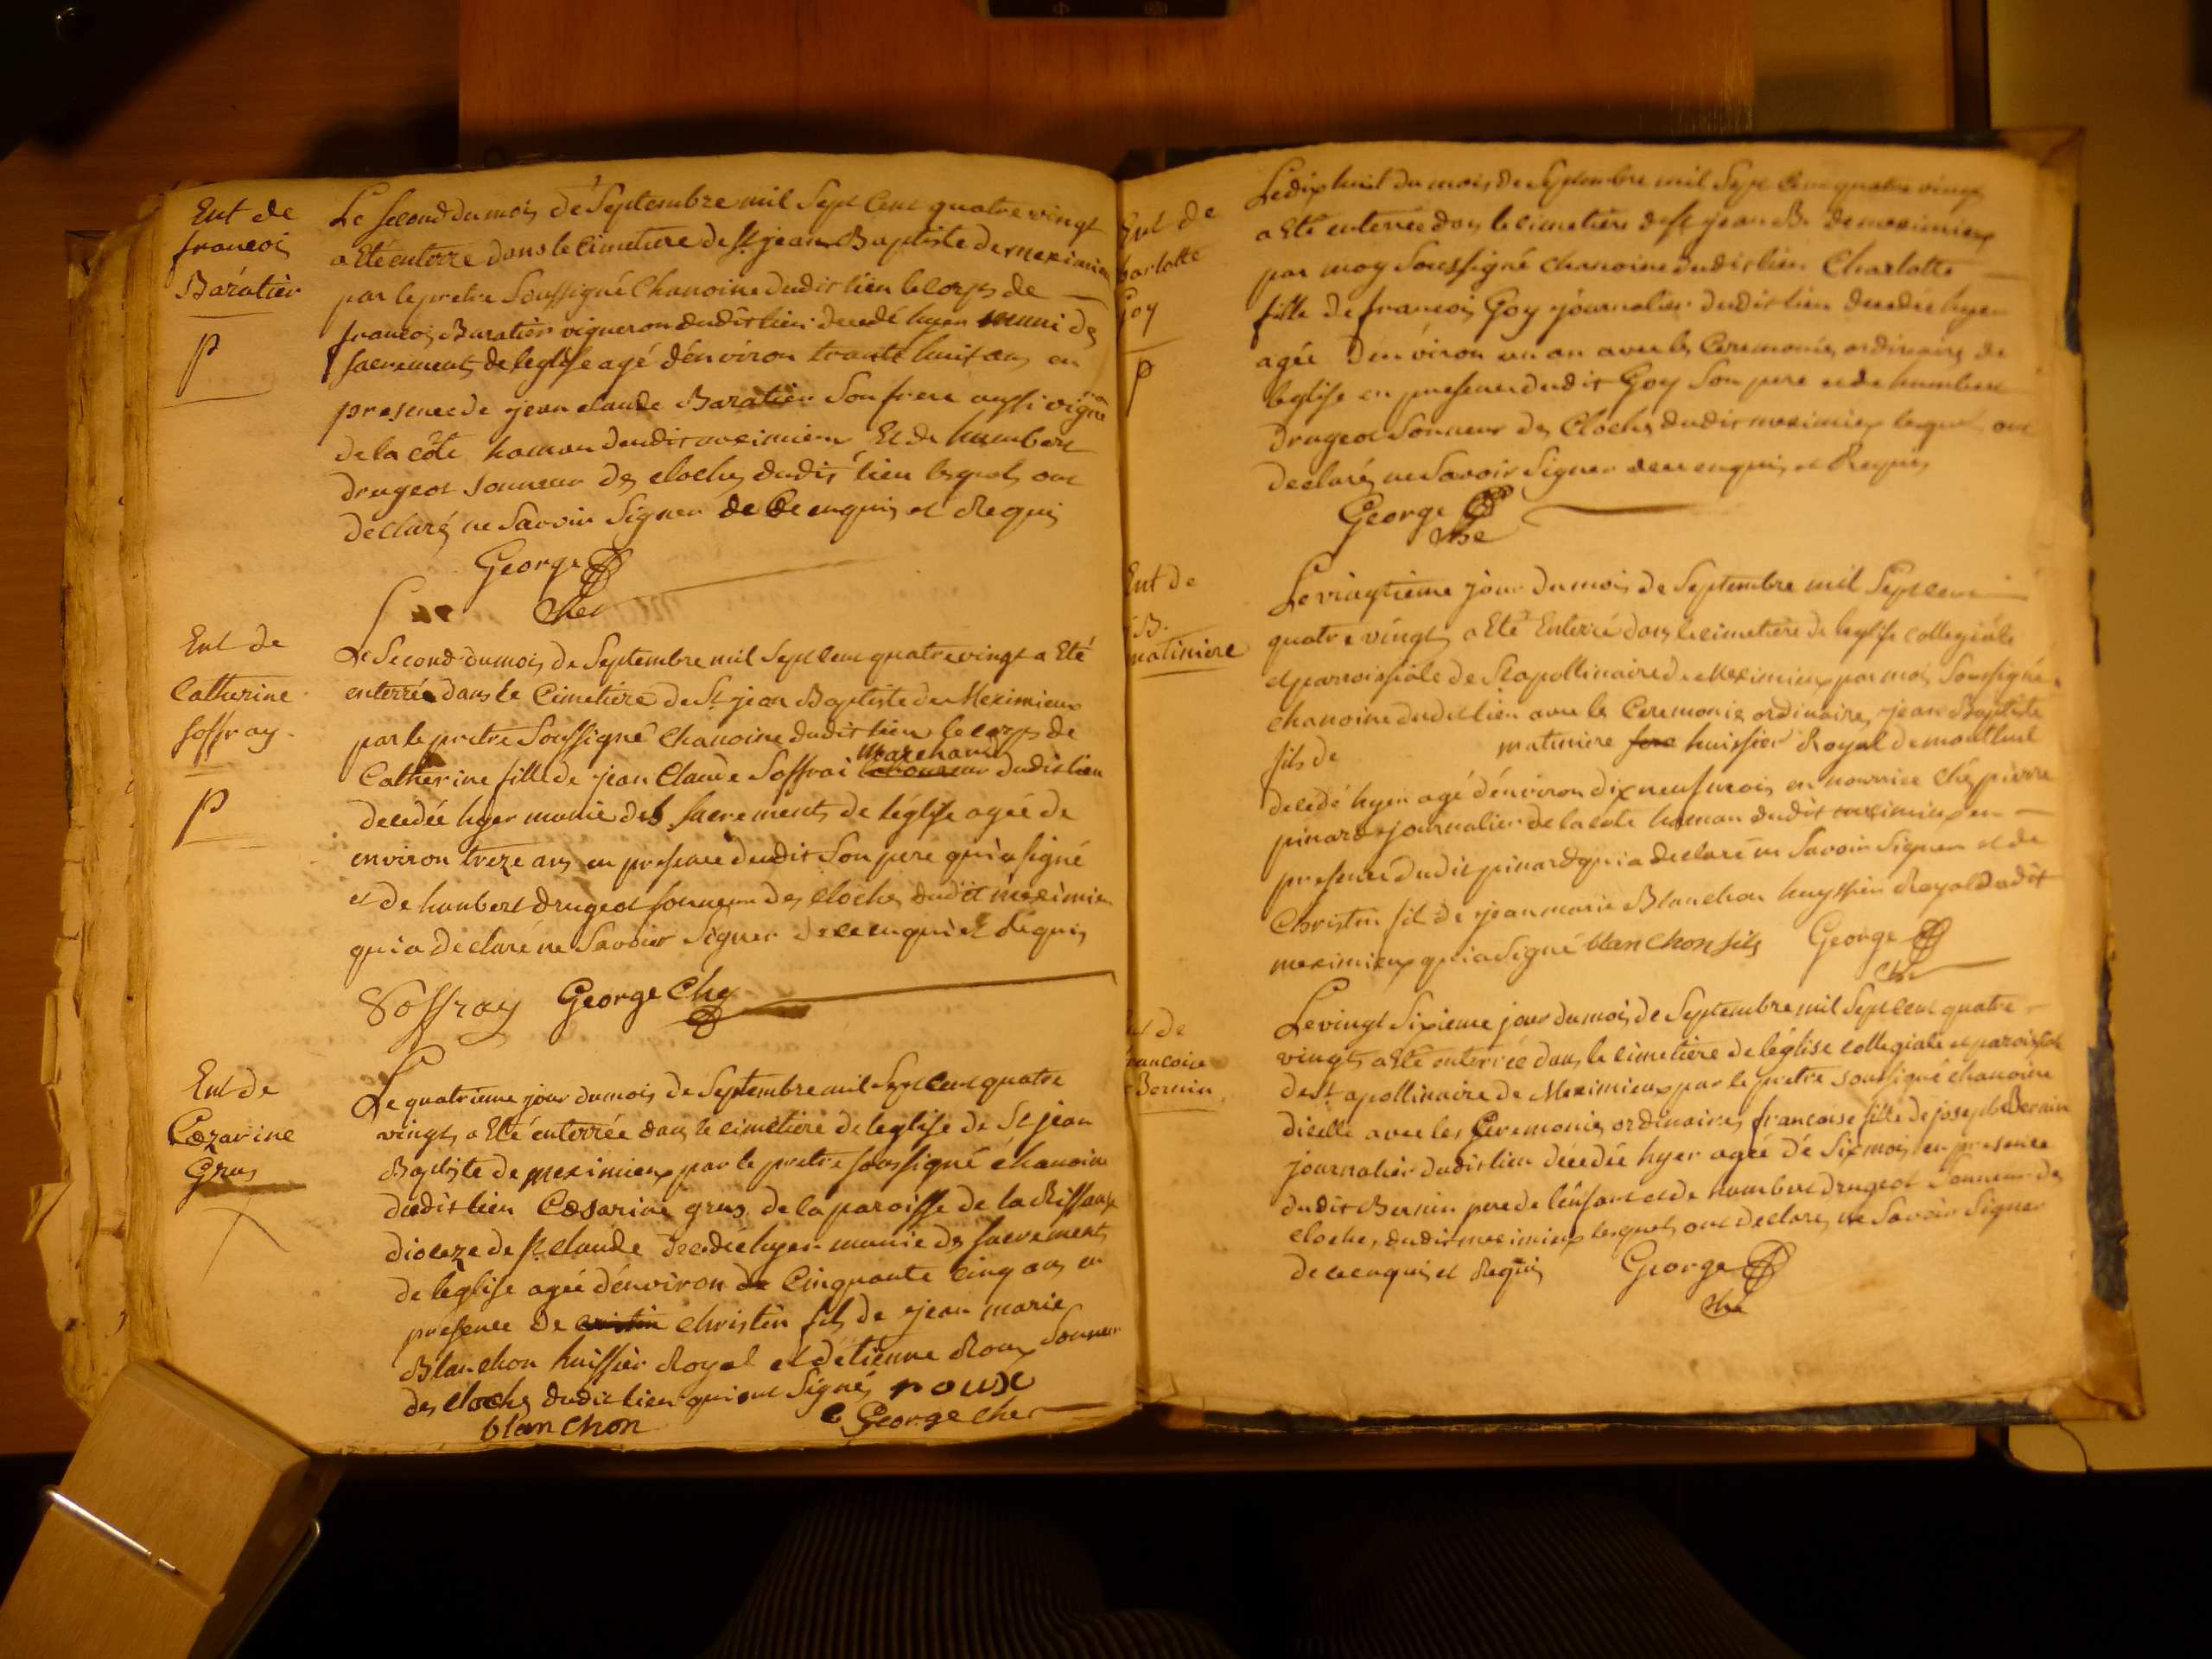 Ent de
francois
Baratier
P
Le second du mois de Septembre mil Sept Cent quatre vingt
a été enterré dans le Cimetiere de St jean Baptiste de meximieu
par le pretre Soussigné Chanoine dudit lieu le corps de
francois Baratier vigneron dudit lieu decedé hyer muni des
sacrements de leglise agé d'environ trante huit ans en
presence de jean claude Baratier Son frere aussi vigne
de la côte haman dudit meximieux Et de humbert
drugeot sonneur des cloches dudit lieu lesquels ont
declarés ne Savoir Signer de Ce enquis et Requis
George
Che
Ent de
Catherine
soffray
P
Le Second du mois de Septembre mil Sept cent quatre vingt a Eté
enterrée dans le Cimetiere de St jean Baptiste de Meximieux
par le pretre Soussigné Chanoine dudit lieu le corps de
marchand
Catherine fille de jean Claude Soffrai laboureur dudit lieu
decedée hyer munie des sacrements de l'église agée de
environ treze ans en presence dudit Son pere qui a signé
et de humbert drugeot sonneur des cloches dudit meximieu
qui a déclaré ne Savoir Signer de ce enquis et Requis
Soffray George Che
Ent de
Cæzarine
Grus
Le quatrieme jour du mois de Septembre mil Sept Cent quatre
vingts a Eté enterrée dans le cimetiere de leglise de St jean
Baptiste de meximieux par le pretre soussigné chanoine
dudit lieu Cæsarine grus de la paroisse de la
dioceze de st claude decedée hyer munie des sacrements
de leglise agée d'environ de Cinquante cinq ans en
presence de christin fils de jean marie
Blanchon huissier Royal et d'étienne Roux Sonneur
des cloches dudit lieu qui ont Signés roux
blanchon George che
Ent de
harlotte
Goy
P
Le dix huit du mois de Septembre mil Sept Cent quatre vingt
a Eté enterrée dans le cimetiere de St jean B. de meximieux
par moy Soussigné chanoine dudit lieu Charlotte
fille de francois Goy journalier dudit lieu decedée hyer
agée d'environ un an avec les Ceremonies ordinaires de
leglise en presence dudit Goy Son pere et de humbert
drugeot Sonneur des Cloches dudit meximieux lesquels ont
declarés ne Savoir Signer de ce enquis et Requis
George
Che
Ent de
J.B.
matiniere
Le vingtieme jour du mois de Septembre mil Sept cent
quatre vingts a Eté Enterré dans le cimetiere de leglise collegiale
et parroissiale de St apollinaire de Meximieux par moi Soussigné
chanoine dudit lieu avec les Ceremonies ordinaires jean Baptiste
fils de matiniere huissier Royal de montluel
decedé hyer agé d'environ dix neuf mois en nourrice chés pierre
pinard journalier de la cote haman dudit meximieux en
presence dudit pinard qui a declaré ne Savoir Signer et de
Christin fils de jean marie Blanchon huyssier Royal dudit
meximieux qui a Signé blanchon fils George
Che
Ent de
francoise
Bernin
Le vingt Sixieme jour du mois de Septembre mil Sept Cent quatre
vingts a Eté enterrée dans le cimetiere de l'église collegiale et paroissiale
de St apollinaire de Meximieux par le pretre soussigné chanoine
dicelle avec les Ceremonies ordinaires francoise fille de joseph Bernin
journalier dudit lieu décedée hyer agée de Six mois en presence
dudit Bernin pere de l'enfant et de humbert drugeot Sonneur des
cloches dudit meximieux lesquels ont declarés ne Savoir Signer
de ce enquis et Requis George
Che